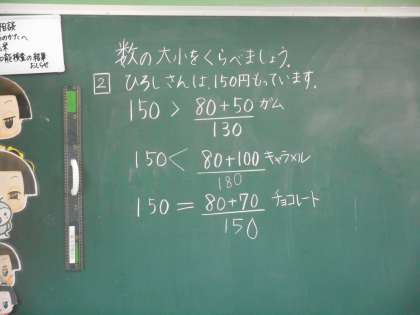 のかたへ
数の大小をくらべましょう。
2 ひろしさんは、150円もっています。
150 > 80+50 ガム
130
150 < 80+100 キャラメル
180
150 = 80+70 チョコレート
150